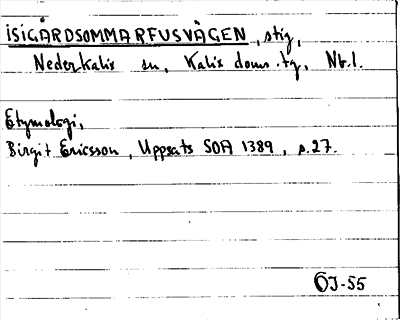 ISIGÅRDSOMMARFUSVÄGEN, stig,
Nederkalix sn, Kalix doms.tg, Nb.l.
Etymologi,
Birgit Ericsson, Uppsats SOA 1389, s.27.
ÖJ-55